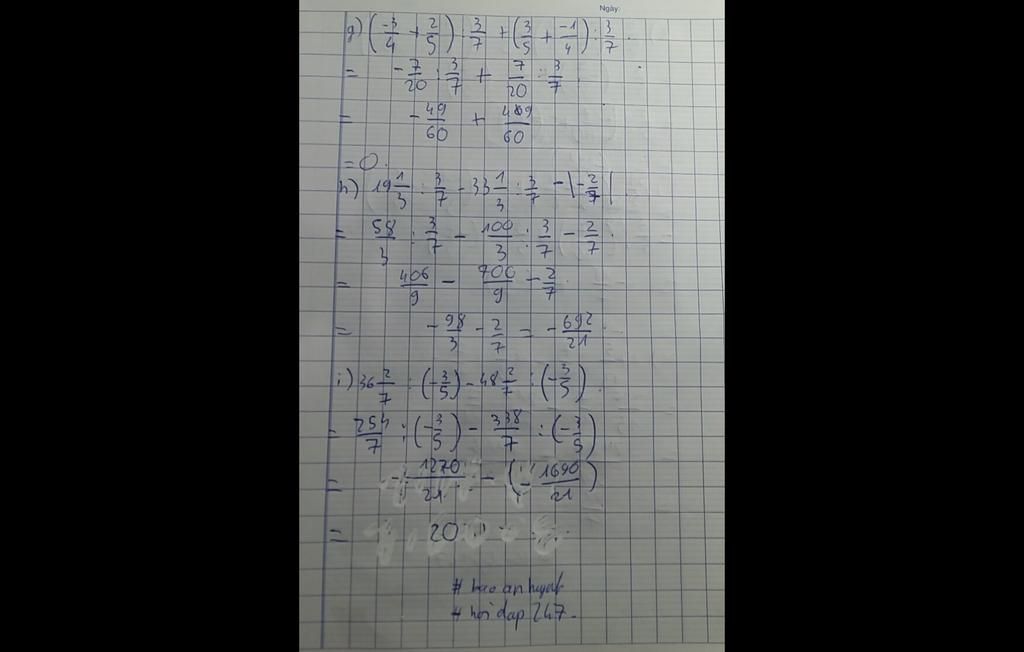 Ngày:
g) (-3/4 + 2/5) : 3/7 + (3/5 + -1/4) : 3/7 .
= -7/20 : 3/7 + 7/20 : 3/7
= -49/60 + 49/60
= 0.
h) 19 1/3 : 3/7 - 33 1/3 : 3/7 - |-2/7|
= 58/3 : 3/7 - 100/3 : 3/7 - 2/7 .
= 406/9 - 700/9 - 2/7
= -98/3 - 2/7 = -692/21
i) 36 2/7 : (-3/5) - 48 2/7 : (-3/5) .
= 254/7 : (-3/5) - 338/7 : (-3/5)
= -1270/21 - (-1690/21)
= 20
#
# hoi dap 247.